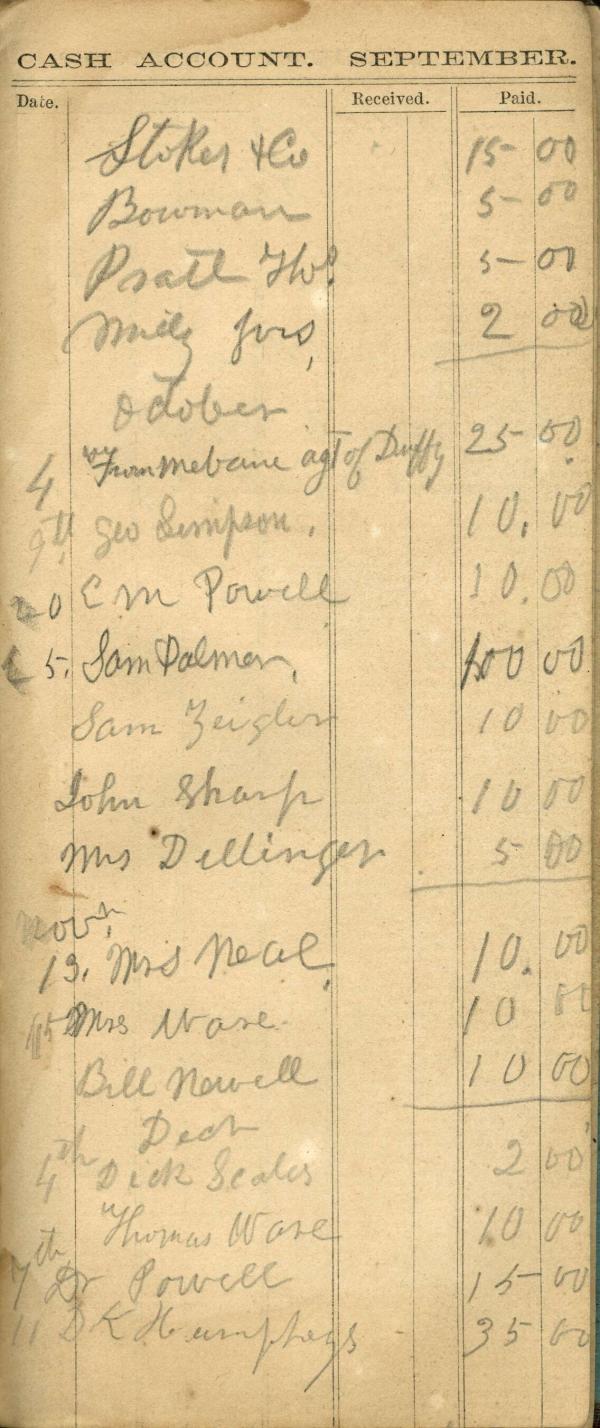 CASH ACCOUNT. SEPTEMBER.
Date. Received. Paid.
Stokes & Co 15 00
Bowman 5 00
Pratt 5 00
2 00
October
4 From Mebane agt of Duffy 25 00
9th Geo Simpson. 10. 00
20 E M Powell 10. 00
25. Sam Palmer. 100 00
Sam Zeigler 10 00
John Sharp 10 00
Mrs Dellinger 5 00
Novr.
13. Mrs Neal. 10. 00
15 Mrs Ware 10 00
Bill Newell 10 00
Decr
4th Dick Scales 2 00
Thomas Ware 10 00
7th Dr Powell 15 00
11 D K Humpheys 35 00